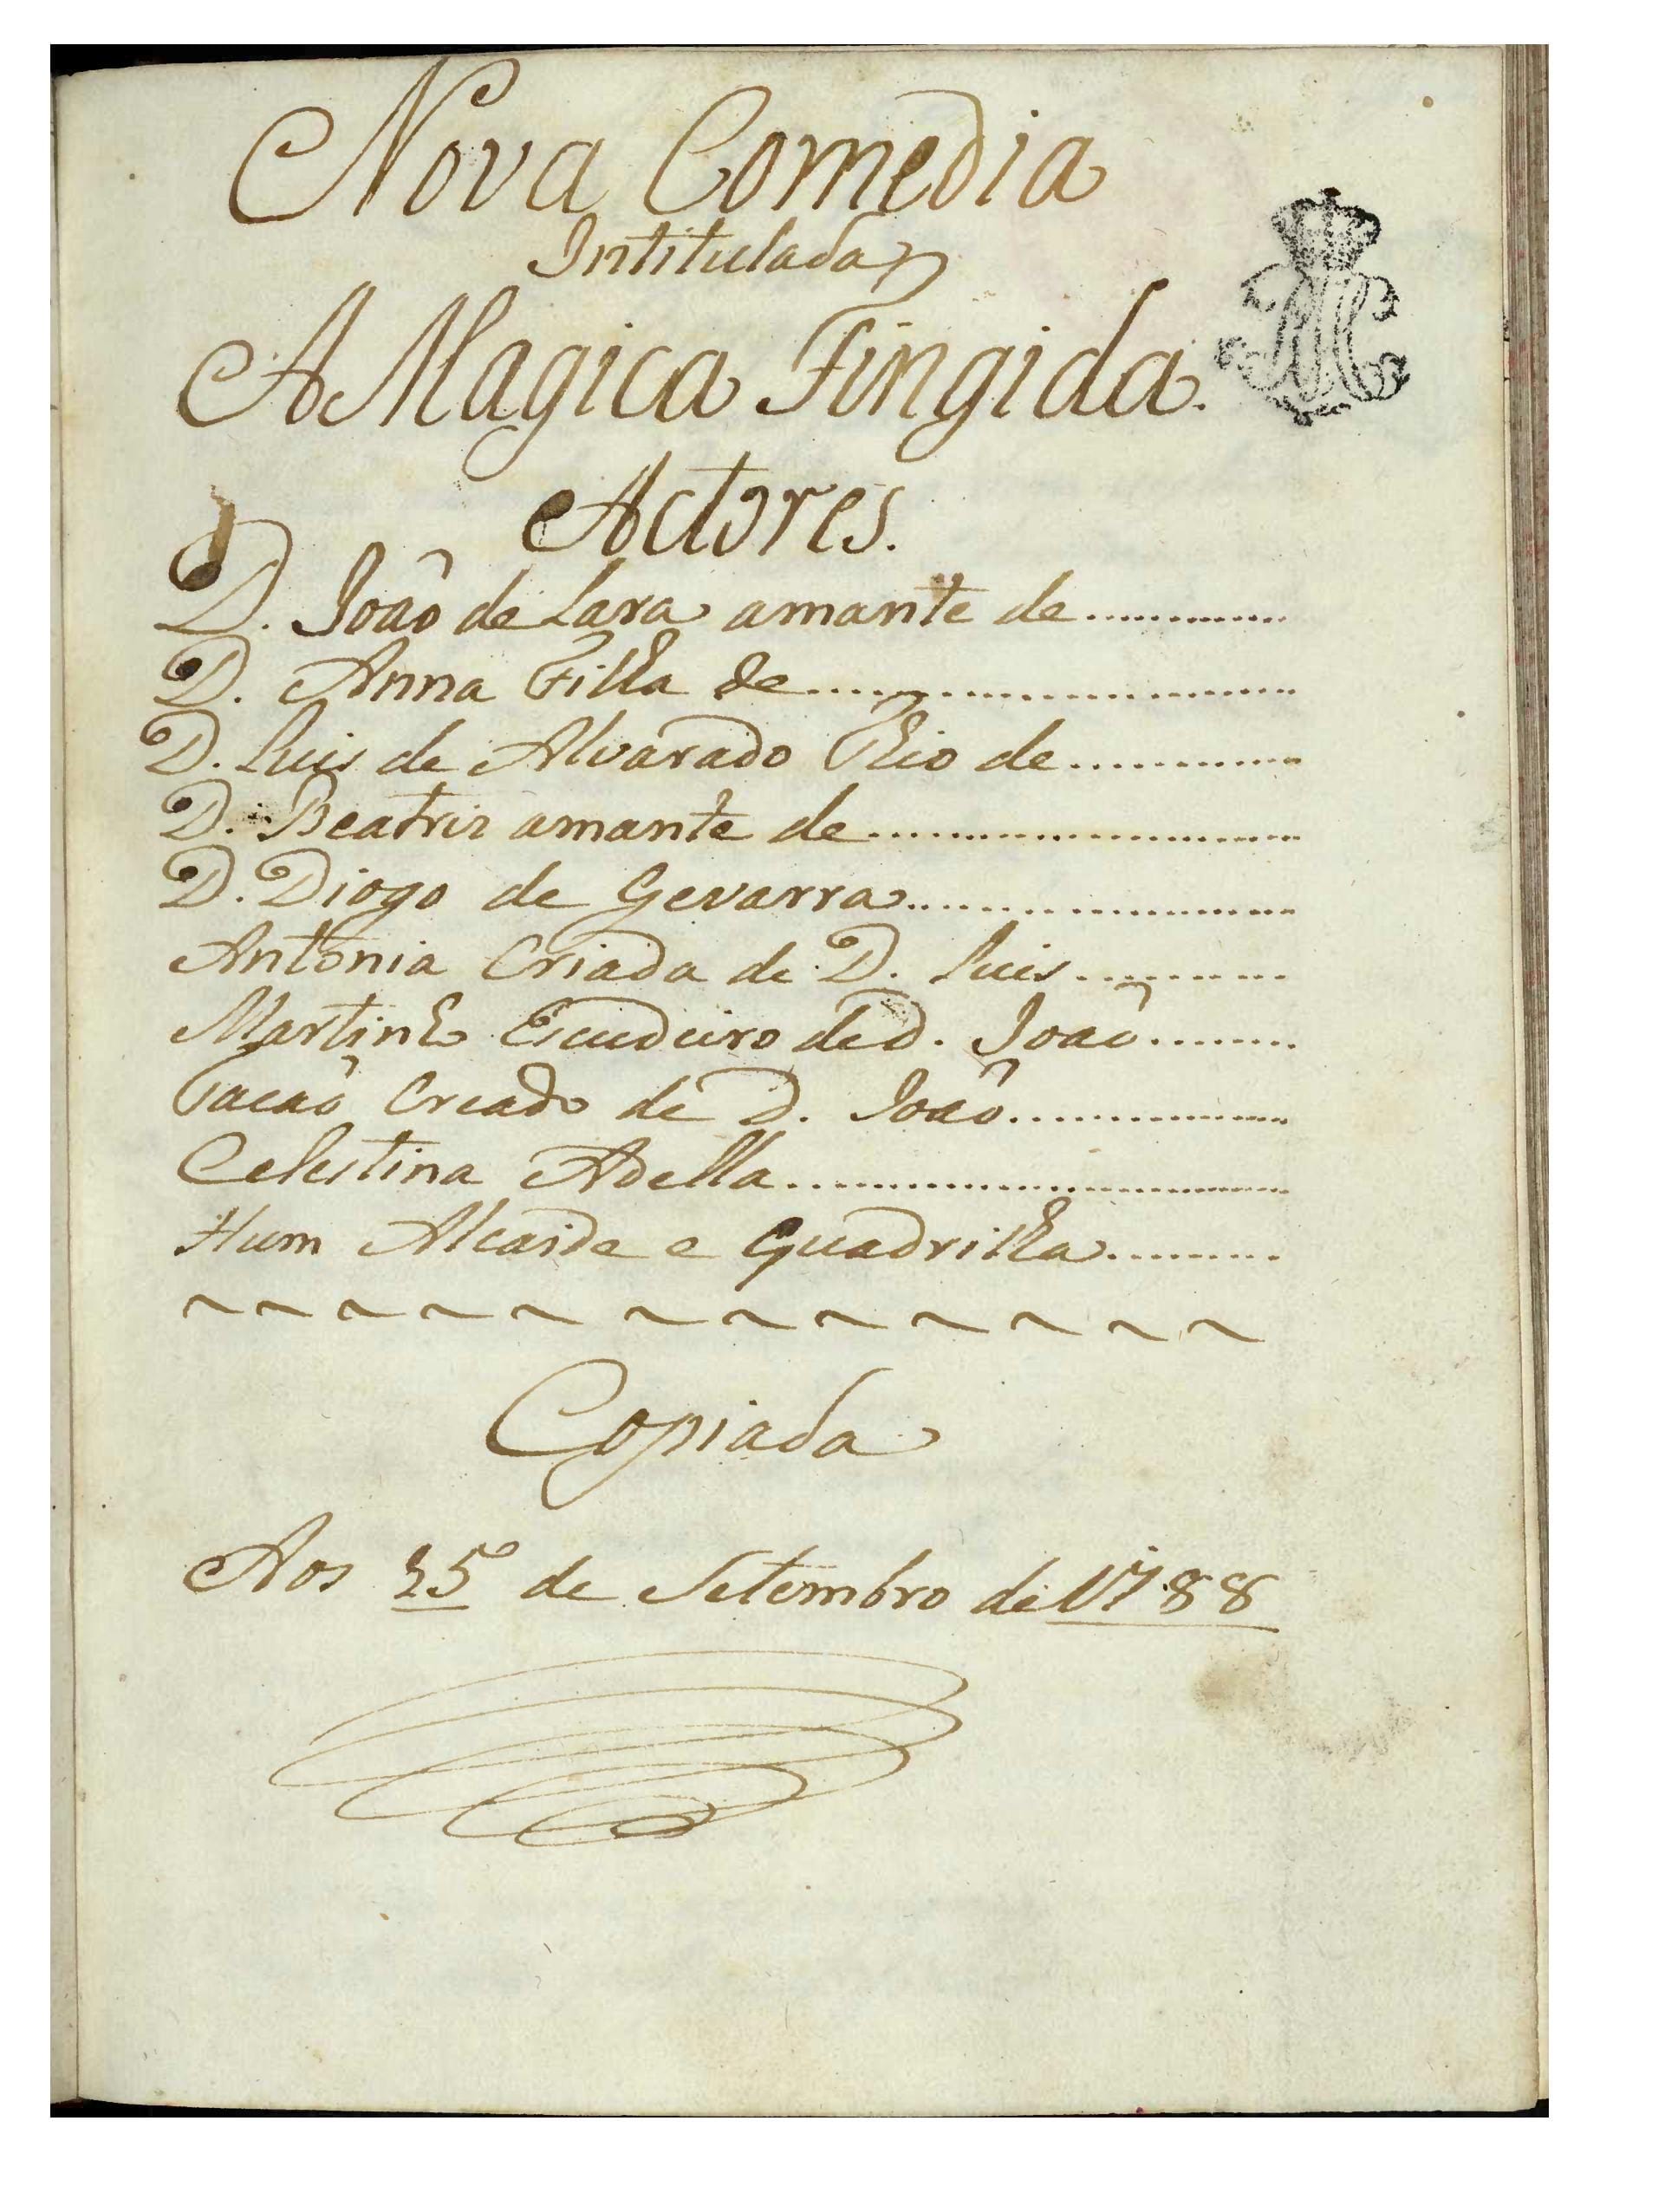 Nova Comedia
Intitulada
A Magica Fingida.
Actores.
D. João de Lara amante de............
D. Anna Filha de............
D. Luis de Alvarado Thio de............
D. Beatris amante de............
D. Diogo de Gevarra............
Antonia Criada de D. Luis............
Martinho Escudeiro de D. João.........
Tacão Creado de D. João............
Celestina Adella............
Hum Alcaide e Quadrilha.........
Copiada
Aos 25 de Setembro de 1788